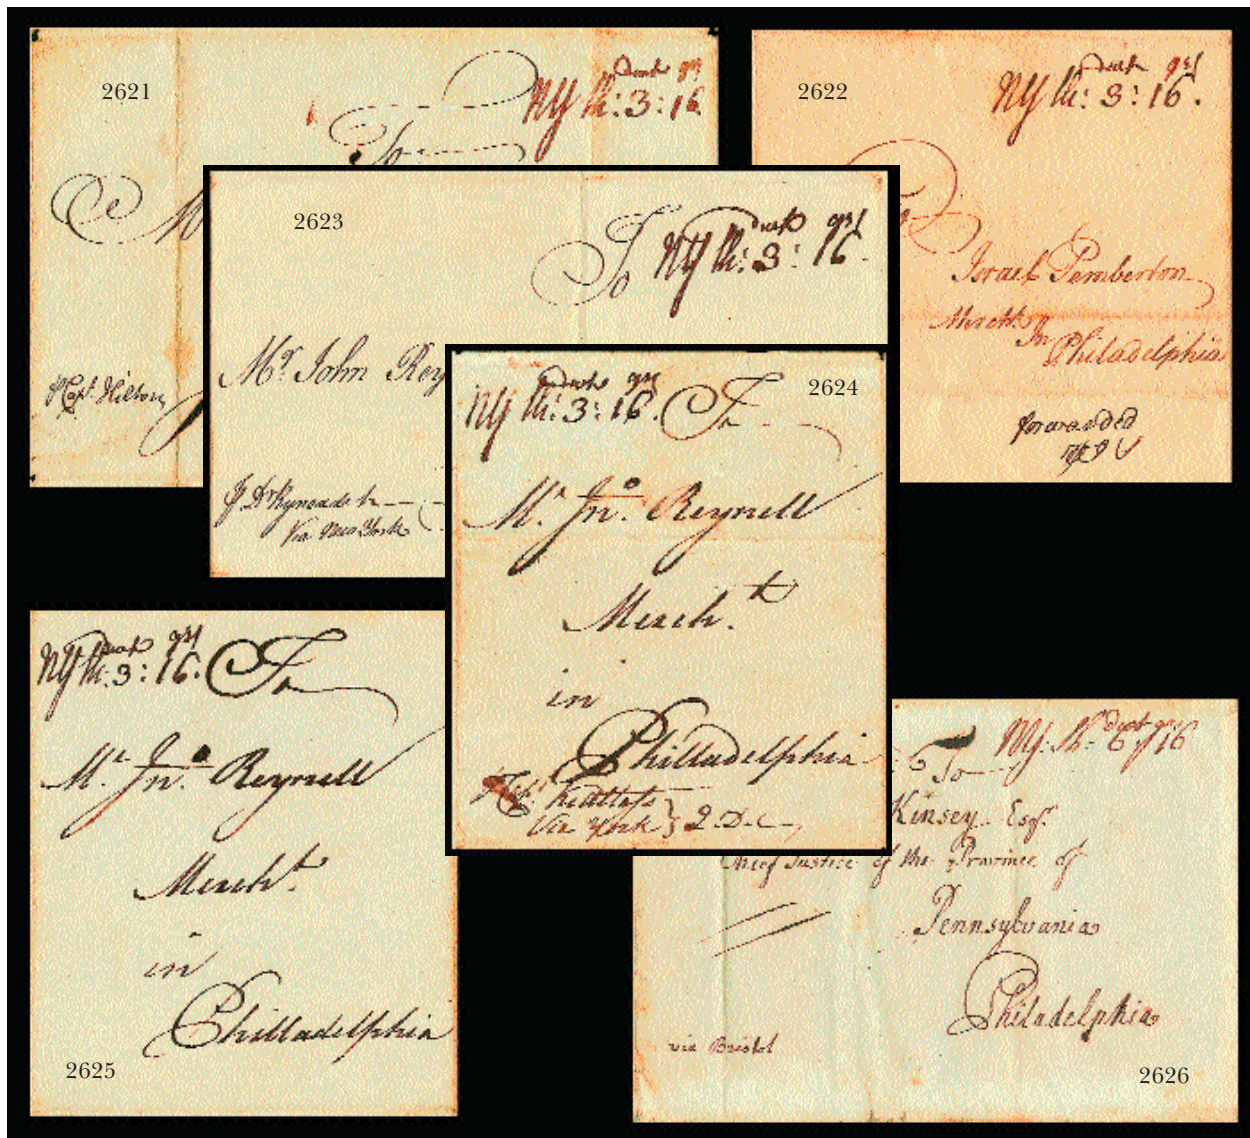 2621
NY Ph: 3:16
To
M
Capt. Hilton
2622
NY Ph: 3:16.
Israel Pemberton
Mercht. In
Philadelphia
forwarded
2623
To
NY Ph: 3:16.
Mr. John Rey
Via New York
2624
NY Ph: 3:16.
To
Mr. Jno. Reynell
Mercht.
in
Philladelphia
Via York } 2. D. C
2625
NY Ph: 3:16.
To
Mr. Jno. Reynell
Mercht.
in
Philladelphia
2626
NY: Ph: 6 16
To
Kinsey Esqr.
Chief Justice of the Province of
Pennsylvania
Philadelphia
via Bristol